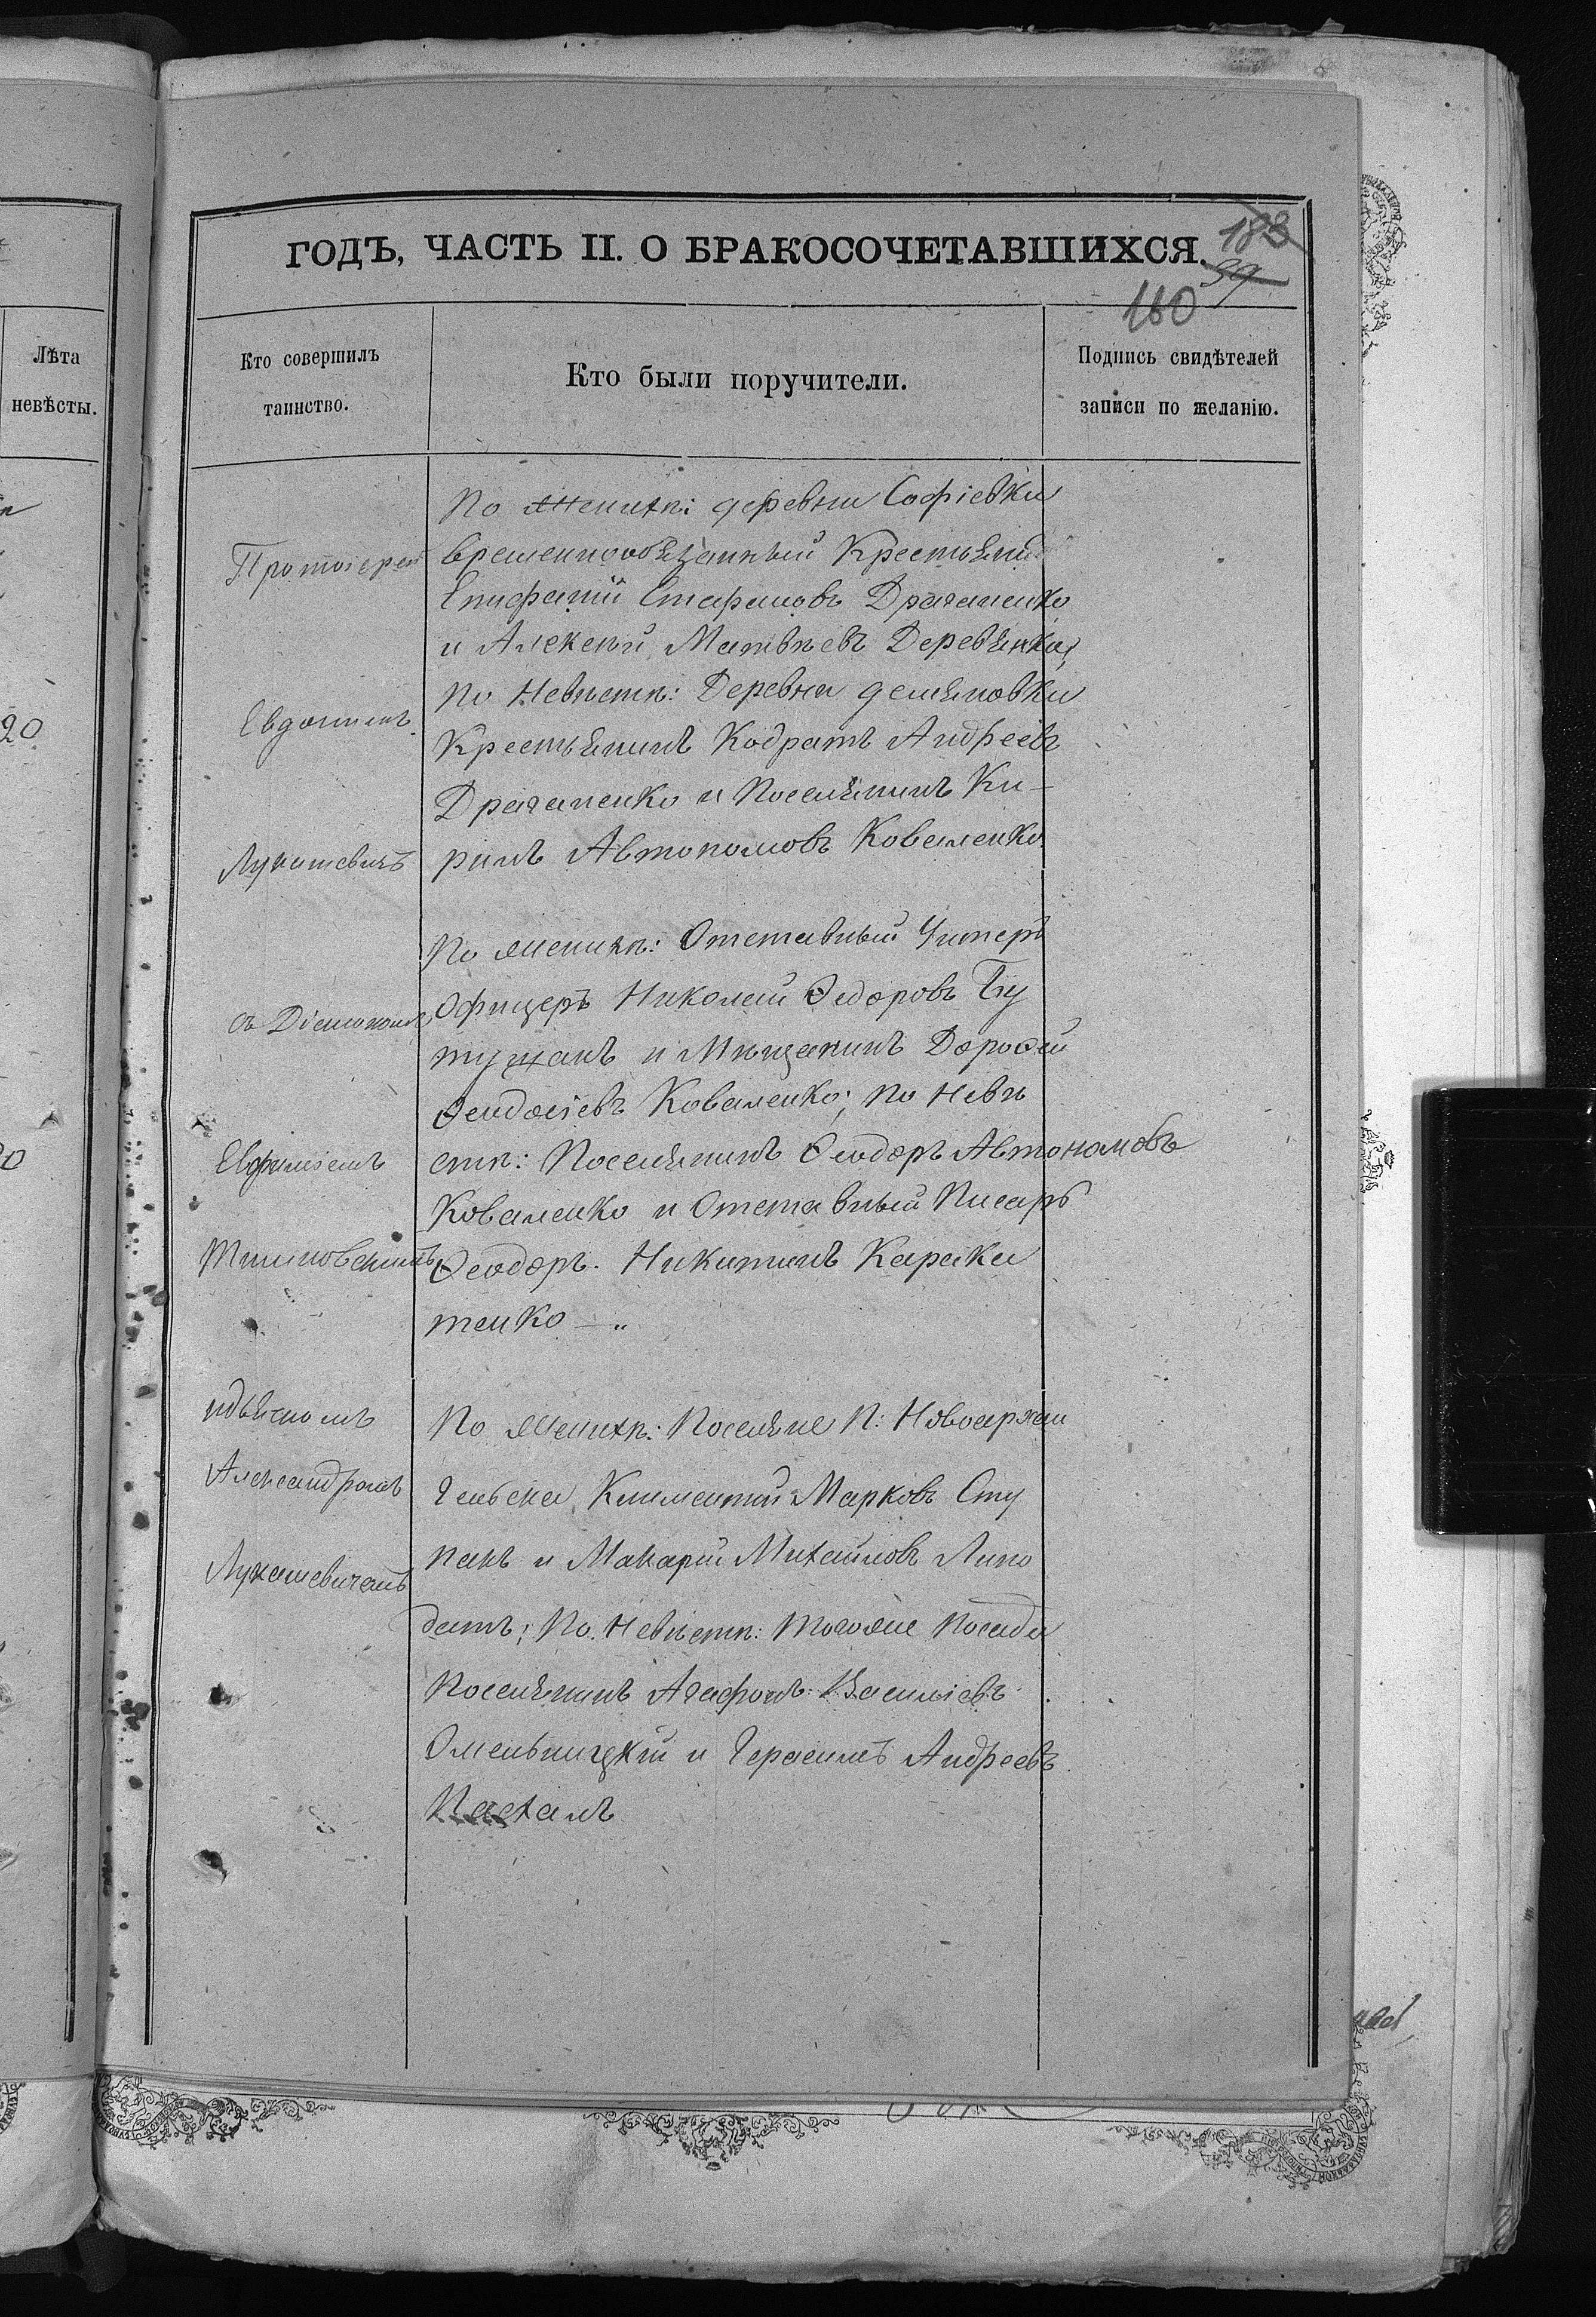 Лѣта
невѣсты.
20
ГОДЪ, ЧАСТЬ II. О БРАКОСОЧЕТАВШИХСЯ.
183
59
160
Кто совершилъ
таинство.
Кто были поручители.
Подпись свидѣтелей
записи по желанію.
Протоіерей
Лукашевичъ
По женихѣ: деревни Софіевки
временнообязанный Крестьянин
Епифаній Стефановъ Драганенко
и Алексѣй Матвѣевъ Деревянка,
по Невѣстѣ: Деревни демяновки
Крестьянинъ Кодратъ Андреевъ
Драганенко и Поселянинъ Ки-
рилъ Автономовъ Коваленко
съ Діакономъ
Евфиміемъ
По женихѣ: Отставный Унтеръ
Офицеръ Николай Ѳедоровъ Бу
тущакъ и Мѣщанинъ Дороѳей
Ѳеодосіевъ Коваленко; по Невѣ
стѣ: Поселянинъ Ѳеодоръ Автономовъ
Коваленко и Отставный Писарь
Ѳеодоръ Никитинъ Карака
тенко — "
Александромъ
Лукашевичемъ
По женихѣ: Поселяне П: Новоархан
гельска, Климентій Марковъ Сту
пакъ и Макарій Михайловъ Липо
датъ; По Невѣстѣ: тогоже Посада
Поселянинъ Агафонъ Василіевъ
Омельницкій и Герасимъ Андреевъ
Пасхалъ